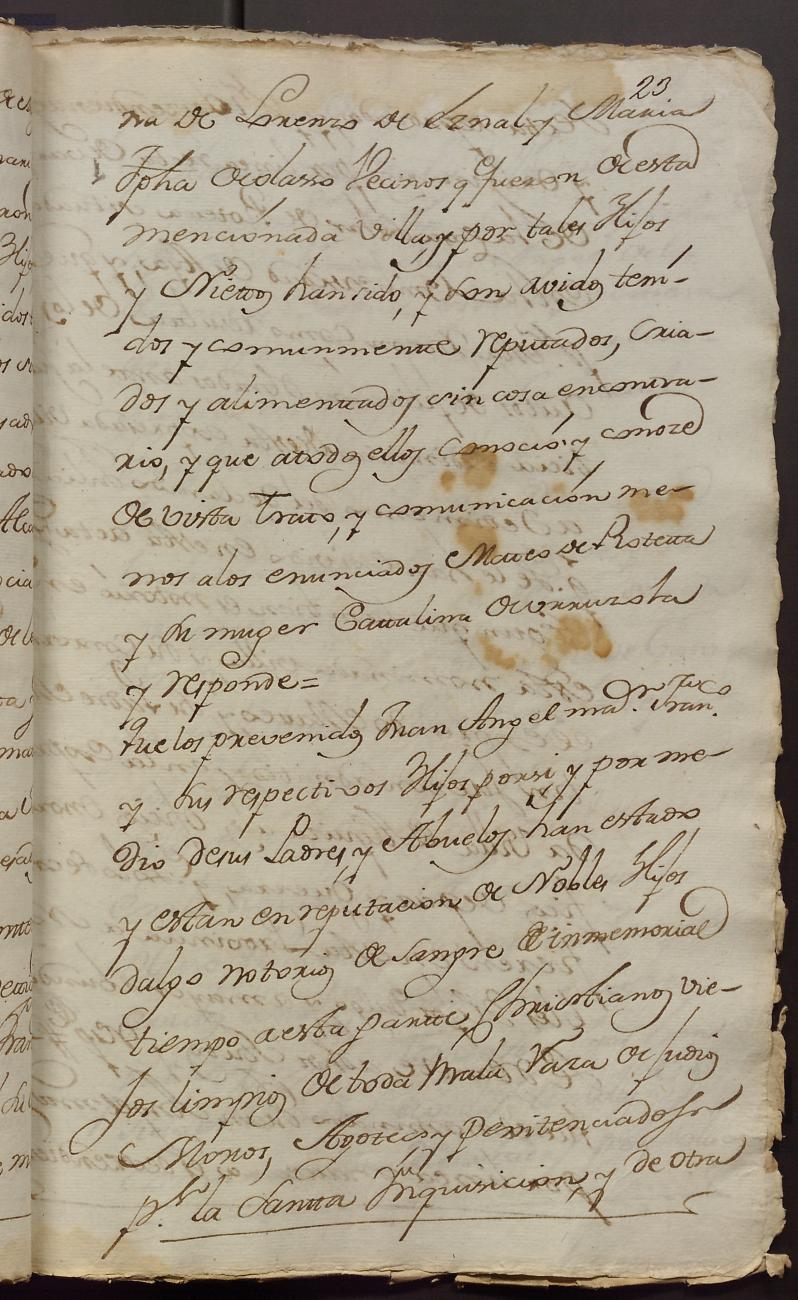 23
na de Lorenzo de Irnal y Maria
Jpha de olasso Vecinos q fueron de esta
mencionada Villa, y por tales Hijos
y Nietos han sido, y son avidos teni-
dos y comunmente reputados, cria-
dos y alimentados sin cosa encontra-
rio, y que atodos ellos conoció, y conoze
de vista trato, y comunicación me-
nos alos enunciados Mateo de Roteta
y su muger Cattalina de
y responde=
Que los prevenidos Juan Angel
y sus respectivos Hijos porsi y por me-
dio de sus Padres, y Abuelos han estado
y estan en reputacion de Nobles Hijos
dalgo notorios de sangre de inmemorial
tiempo a esta partte, Christianos vie-
jos limpios de toda mala raza de Judios
Moros, Agotes y penitenciados
pr la Santta Inquisicion, y de otra